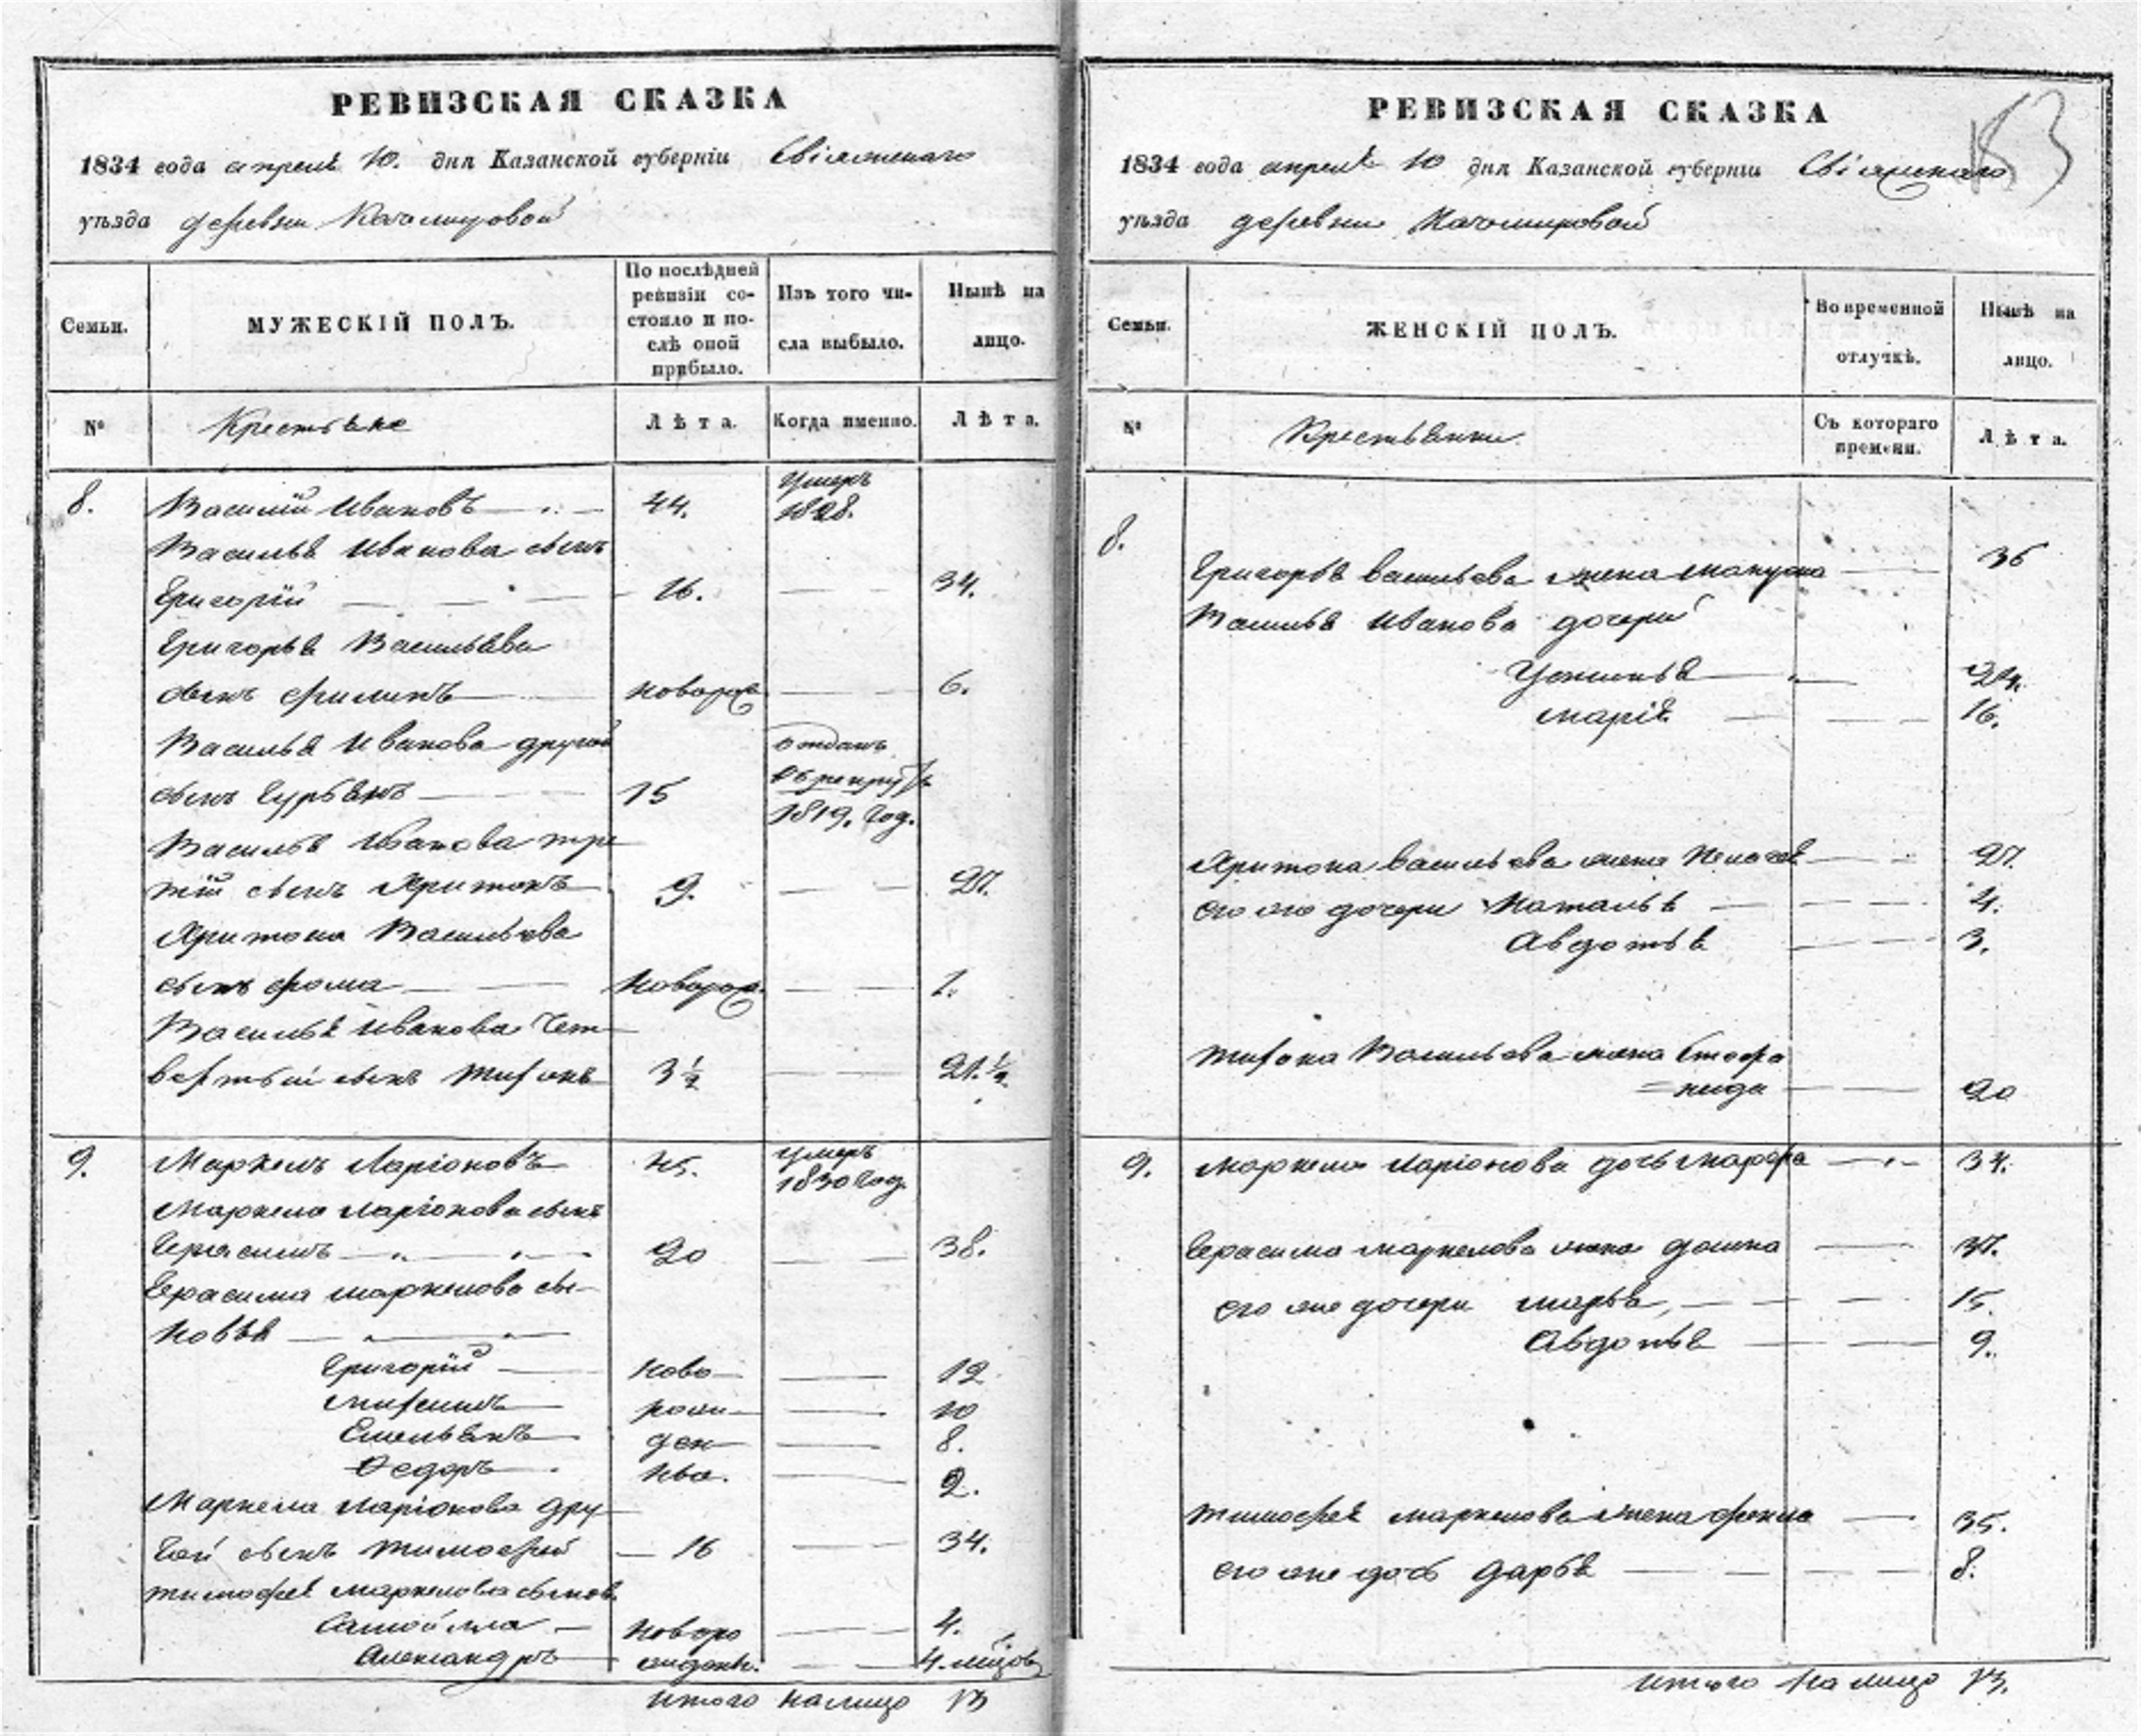 РЕВИЗСКАЯ СКАЗКА
1834 года апреля 10. дня Казанской губерніи Свіяжскаго
уѣзда деревни
Семьи.
МУЖЕСКІЙ ПОЛЪ.
По послѣдней
ревизіи со-
стояло и по-
слѣ оной
прибыло.
Изъ того чи-
сла выбыло.
Нынѣ на
лицо.
№
Крестьяне
Лѣта.
Когда именно.
Лѣта.
8. Василий Ивановъ 44. умеръ
1828.
Василья Иванова сынъ
Григорій 16. 34.
Григорья Васильева
сынъ Филипъ новорож 6.
Василья Иванова другой отданъ
сынъ Гурьянъ 15 въ рекруты
1819. год.
Василья Иванова тре
тій сынъ Харитонъ 9. 27.
Харитона Васильева
сынъ Фома новорож. 1.
Василья Иванова чет
вертый сынъ Тифонъ 3 ½ 21. ½
9. Маркелъ Ларіоновъ 45. умеръ
1830 год.
Маркела Ларіонова сынъ
Герасимъ 20 38.
Герасима Маркелова сы-
новья
Григорій ново 12
рож 10
Емельянъ ден 8.
Ѳедоръ ные. 2.
Маркела Ларіонова дру
гой сынъ Тимофей 16 34.
Тимофея Маркелова сынов.
Самойла новоро 4.
Александръ жденъ. 4. месцов
итого налицо 13
РЕВИЗСКАЯ СКАЗКА
183
1834 года апреля 10 дня Казанской губерніи Свіяжскаго
уѣзда деревни
Семьи.
ЖЕНСКІЙ ПОЛЪ.
Во временной
отлучкѣ.
Нынѣ на
лицо.
№
Крестьянки
Съ котораго
времени.
Лѣта.
8.
Григорья Васильева жена 36
Василья Иванова дочери
Устинья 24.
Марія 16.
Харитона Васильева жена Пелагея 27.
его же дочери Наталья 4.
Авдотья 3.
Тифона Васильева жена Стефа
=нида 20
9. Маркела Ларіонова дочь Марфа 34.
Герасима Маркелова жена Домна 37.
его же дочери Марья, 15.
Авдотья 9.
Тимофея Маркелова жена Фекла 35.
его же дочь Дарья 8.
итого на лицо 13.